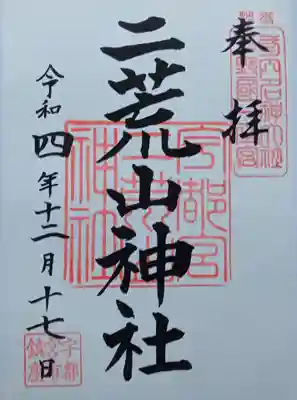 奉拝
二荒山神社
令和四年十二月十七日
宇都宮
二荒山
神社